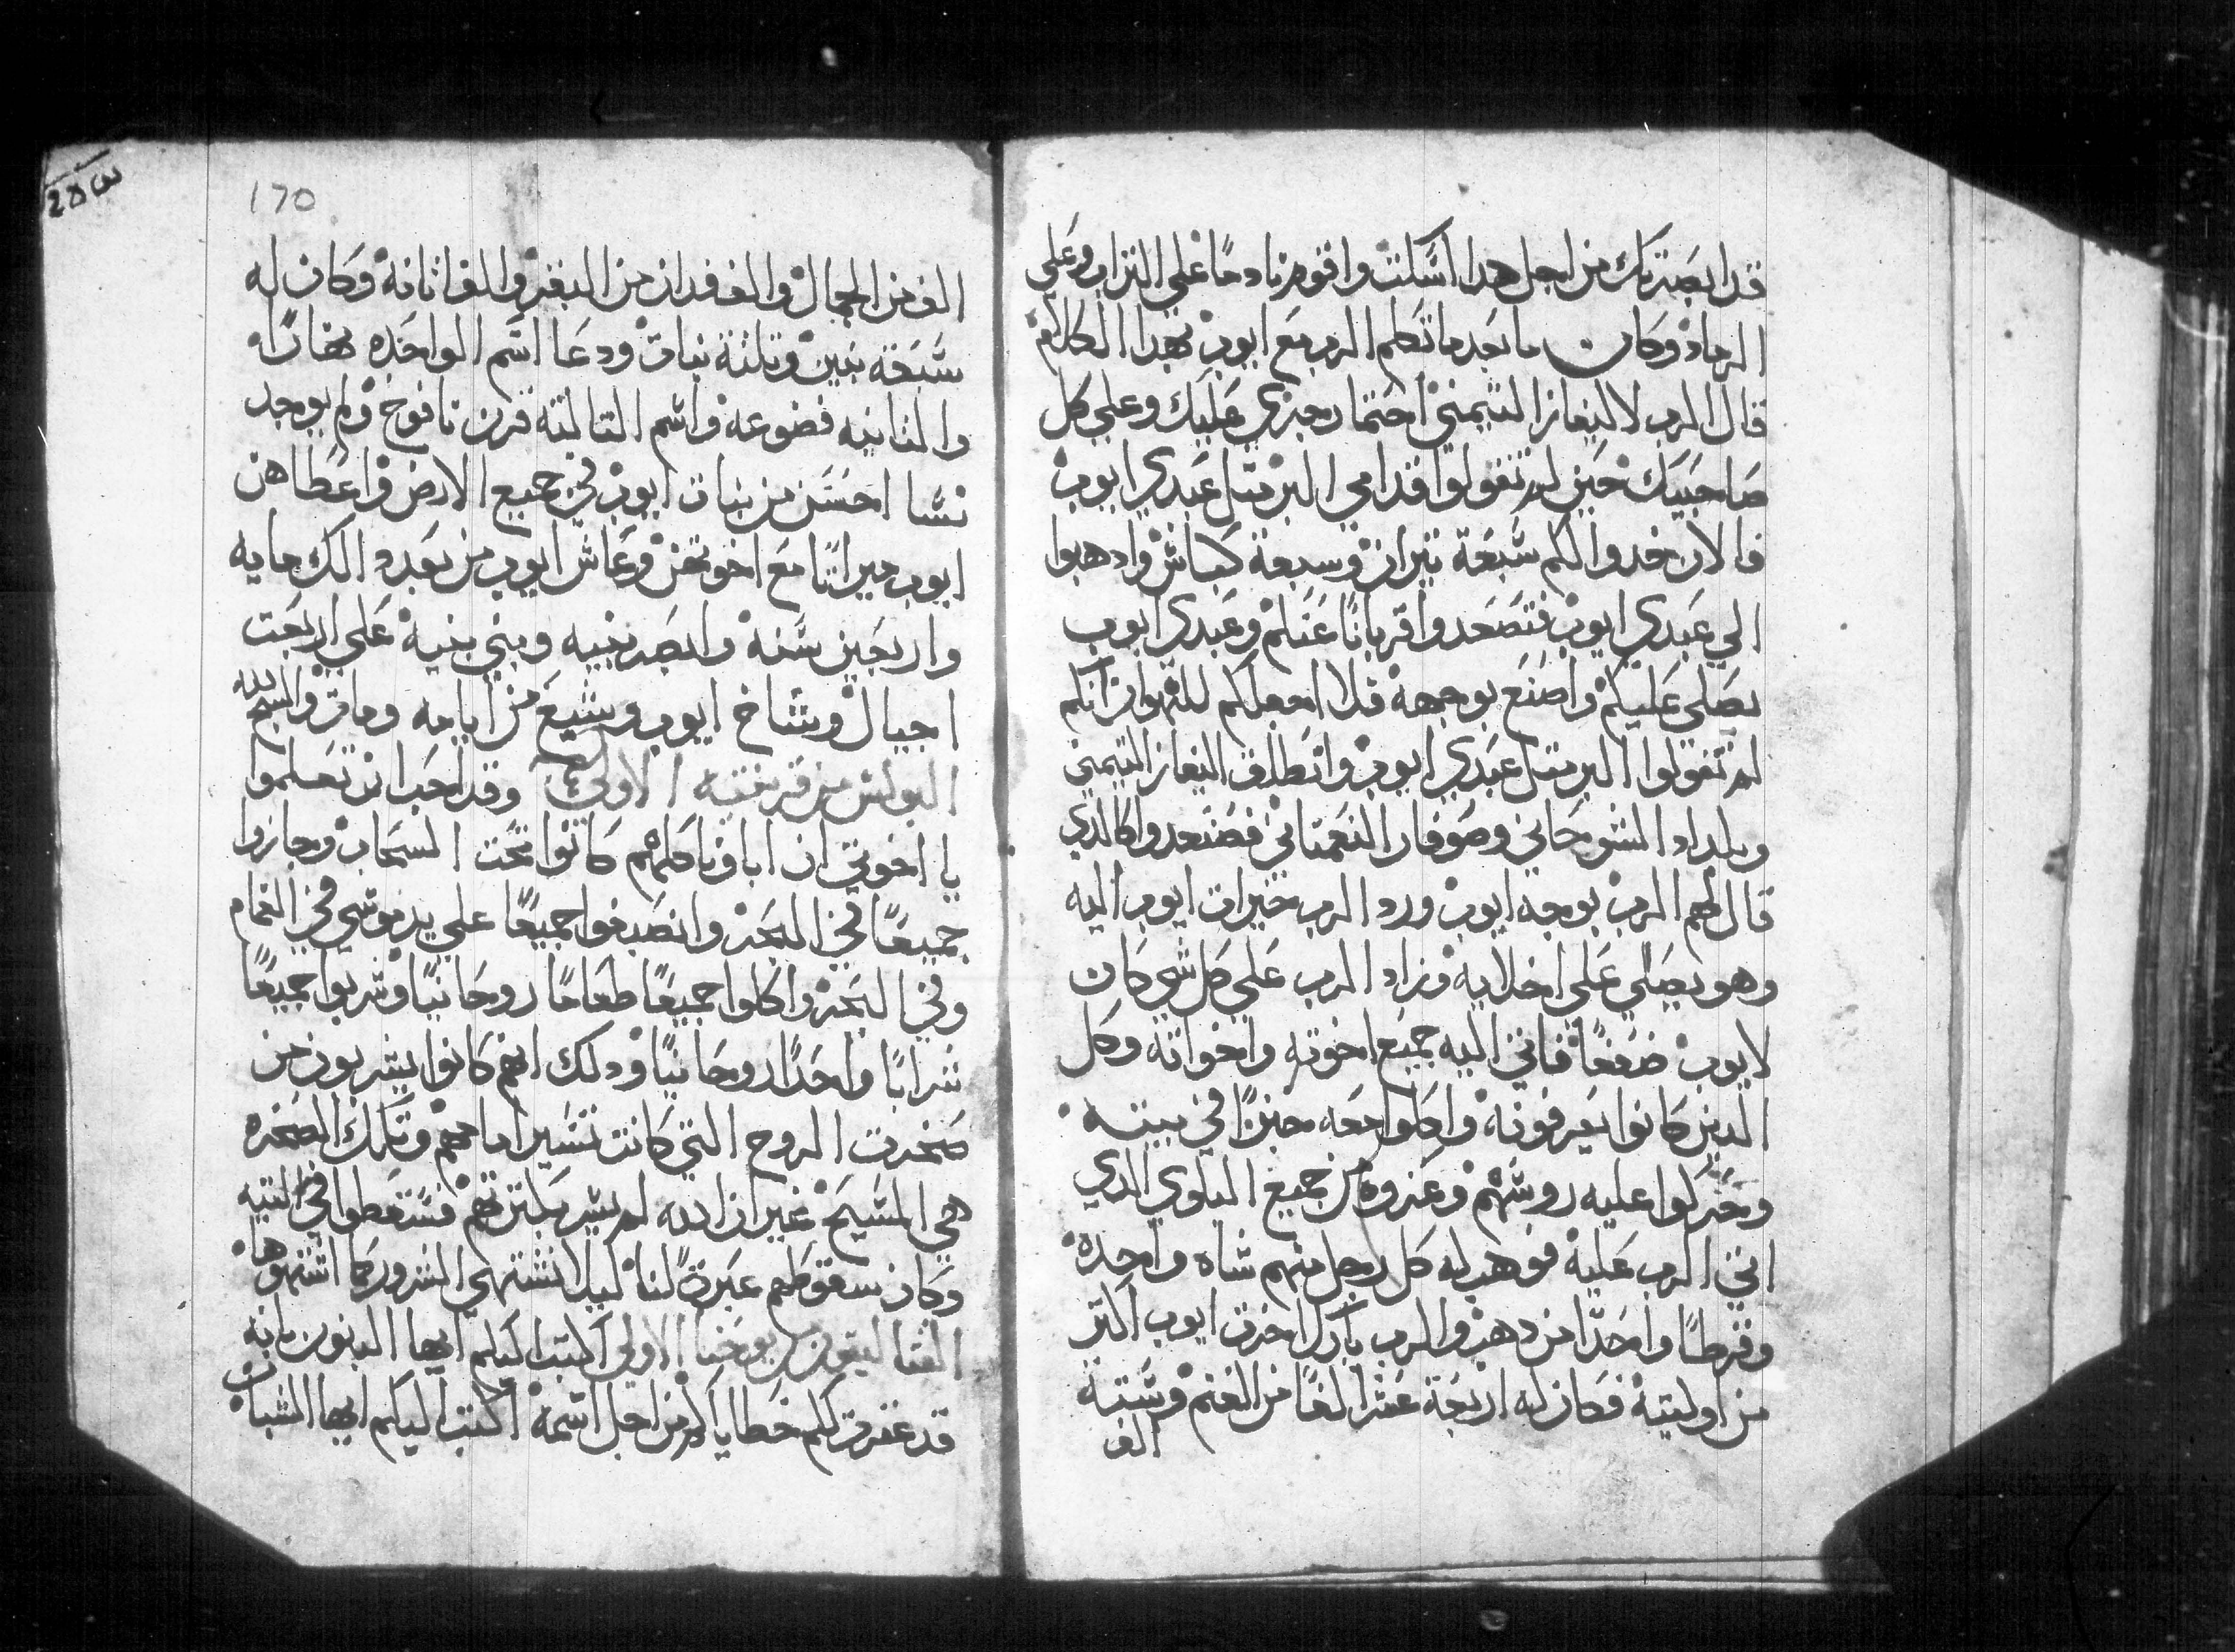 قد ابصرتك من اجل هدا اسكت واقوم نادمًا علي التراب وعلي
الرماد وكان ما بعد ما تكلم الرب مع ايوب بهدا الكلام
قال الرب لاليفاز التيمني احتما رجزي عليك وعلي كل
صاحبيك حين لم تقولوا قدامي البر مثل عبدي ايوب
فالان خدوا لكم سبعة تيران وسبعة كباش وادهبوا
الي عبدي ايوب فتصعدوا قربانًا عنكم وعبدي ايوب
يصلي عليكم واصنع بوجهه فلا اجعلكم للهوان انكم
لم تقولوا البر مثل عبدي ايوب وانطلق اليفاز التيمني
وبلداد الشوحاني وصوفار النعمتاني فصنعوا كالدي
قال لهم الرب بوجه ايوب ورد الرب خيرات ايوب اليه
وهو يصلي علي اخلايه وزاد الرب علي كل شي كان
لايوب ضعفًا فاتي اليه جميع اخوته واخواته وكل
الدين كانوا يعرفونه واكلوا معه خبزًا في بيته
وحركوا عليه روسهم وعزوه من جميع البلوي الدي
اتي الرب عليه فوهب له كل رجل منهم شاه واحده
وقرطًا واحدًا من دهب والرب بارك اخرت ايوب اكتر
من اوليته فكان له اربعة عشر الفًا من الغنم وستة
الف
170
الف من الجمال والف فدان من البقر والف اتانة وكان له
سبعة بنين وتلتة بنات ودعا اسم الواحده نهارًا
والتانيه قضوعه واسم التالته قرن نافوخ ولم يوجد
نسا احسن من بنات ايوب في جميع الارض واعطاهن
ايوب ميراتًا مع اخوتهن وعاش ايوب من بعد دالك مايه
واربعين سنة وابصر بنيه وبني بنيه علي اربعت
اجيال وشاخ ايوب وشبع من ايامه ومات والسبح لله
البولس من قرنتيه الاولي وقد احب ان تعلموا
يا اخوتي ان اباونا كلهم كانوا تحت السحاب وجازوا
جميعًا في البحر وانصبغوا جميعًا علي يد موسي في الغمام
وفي البحر واكلوا جميعًا طعامًا روحانيًا وشربوا جميعًا
شرابًا واحدًا روحانيًا ودلك انهم كانوا يشربون من
صخرت الروح التي كانت تسير امامهم وتلك الصخره
هي المسيح غير ان الله لم يسر بكترتهم فسقطوا في التيه
وكان سقوطهم عبرة لنا ليلا نشتهي الشرور كما اشتهوها
القتاليقون يوحنا الاولي اكتب اليكم ايها البنون بانه
قد غفرت لكم خطاياكم من اجل اسمه اكتب اليكم ايها الشبات